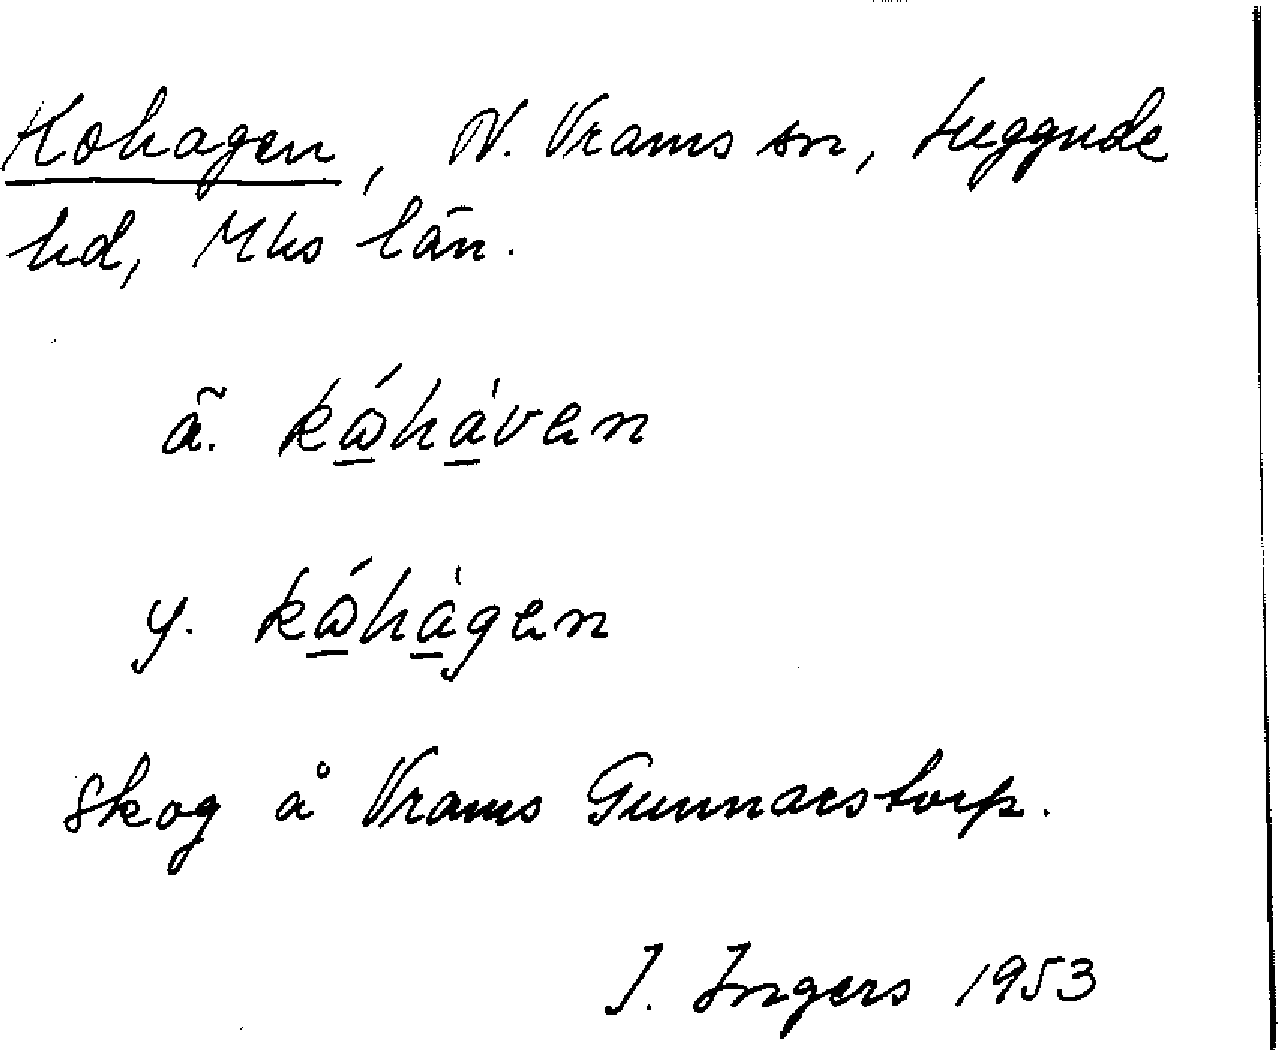 Kohagen, N. Vrams sn, Luggude
hd, Mhs län.
ä. kåhàven
y. kåhàgen
Skog å Vrams Gunnarstorp.
I. Ingers 1953